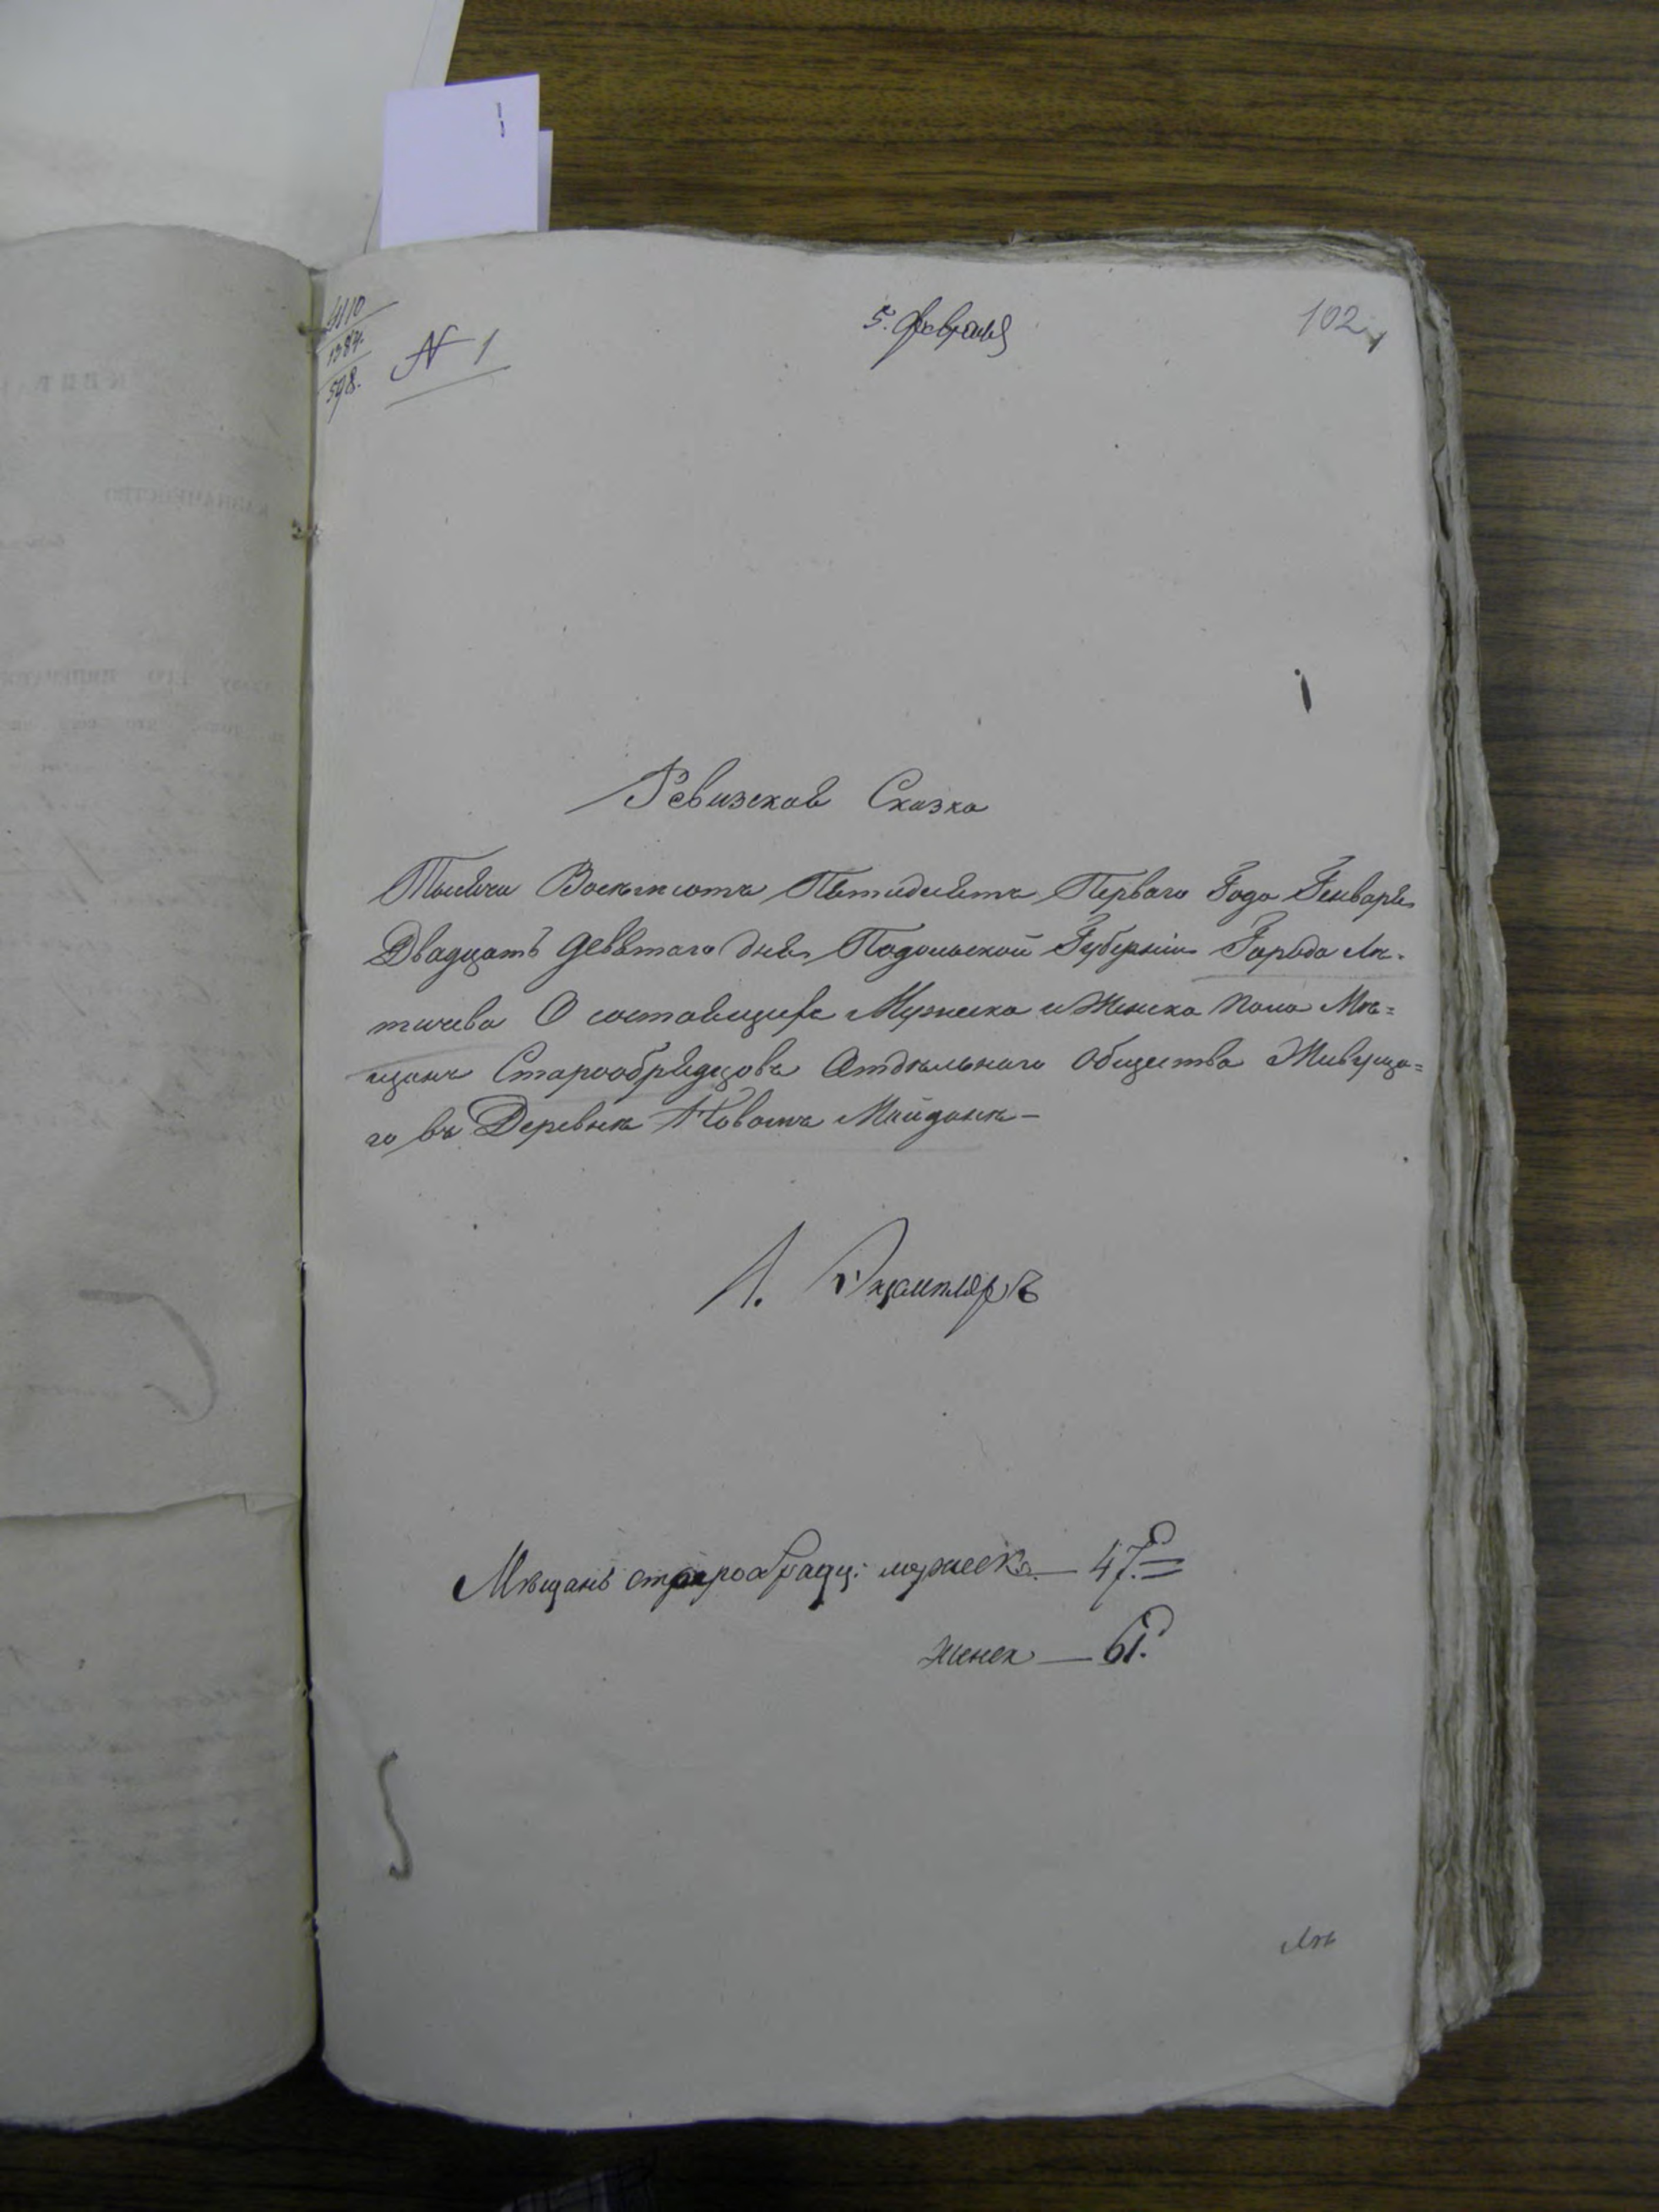 4110
1384.
598.
N 1
5. февраля
102
Ревизская Сказка
Тысяча Восемсотъ Пятидесятъ Перваго Года Генваря
Двадцать девятаго дня Подольской Губерніи Города Ле-
тичева О состоящихъ Мужеска и Женска пола Мѣ=
щанъ Старообрядцовъ Отдѣльнаго Общества Живуща=
го въ Деревнѣ Новомъ Майданѣ—
1. Экземпляръ
Мѣщанъ старообрядц: мужеск. — 47.
женск — 61.